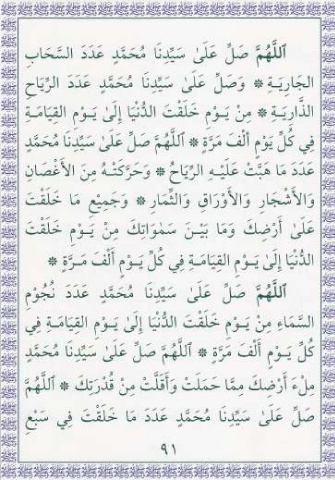 ٱللَّهُمَّ صَلِّ عَلَىٰ سَيِّدِنَا مُحَمَّدٍ عَدَدَ السَّحَابِ
الجَارِيَةِ ۞ وَصَلِّ عَلَىٰ سَيِّدِنَا مُحَمَّدٍ عَدَدَ الرِّيَاحِ
الذَّارِيَةِ ۞ مِنْ يَوْمِ خَلَقْتَ الدُّنْيَا إِلَىٰ يَوْمِ القِيَامَةِ
فِي كُلِّ يَوْمٍ أَلْفَ مَرَّةٍ ۞ ٱللَّهُمَّ صَلِّ عَلَىٰ سَيِّدِنَا مُحَمَّدٍ
عَدَدَ مَا هَبَّتْ عَلَيْهِ الرِّيَاحُ ۞ وَحَرَّكَتْهُ مِنَ الأَغْصَانِ
وَالأَشْجَارِ وَالأَوْرَاقِ وَالثِّمَارِ ۞ وَجَمِيعِ مَا خَلَقْتَ
عَلَىٰ أَرْضِكَ وَمَا بَيْنَ سَمٰوَاتِكَ مِنْ يَوْمِ خَلَقْتَ
الدُّنْيَا إِلَىٰ يَوْمِ القِيَامَةِ فِي كُلِّ يَوْمٍ أَلْفَ مَرَّةٍ ۞
ٱللَّهُمَّ صَلِّ عَلَىٰ سَيِّدِنَا مُحَمَّدٍ عَدَدَ نُجُومِ
السَّمَاءِ مِنْ يَوْمِ خَلَقْتَ الدُّنْيَا إِلَىٰ يَوْمِ القِيَامَةِ فِي
كُلِّ يَوْمٍ أَلْفَ مَرَّةٍ ۞ ٱللَّهُمَّ صَلِّ عَلَىٰ سَيِّدِنَا مُحَمَّدٍ
مِلْءَ أَرْضِكَ مِمَّا حَمَلَتْ وَأَقَلَّتْ مِنْ قُدْرَتِكَ ۞ ٱللَّهُمَّ
صَلِّ عَلَىٰ سَيِّدِنَا مُحَمَّدٍ عَدَدَ مَا خَلَقْتَ فِي سَبْعِ
٩١